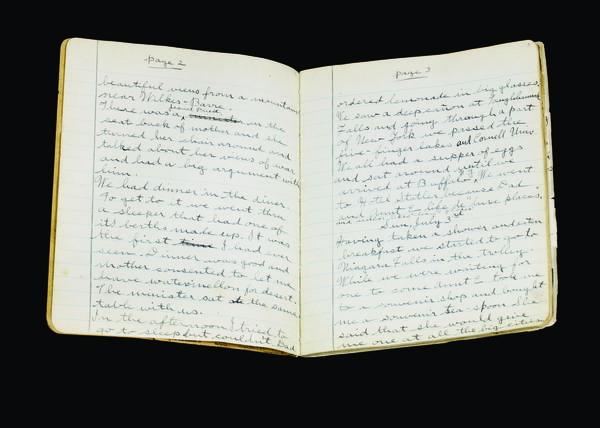 page 2
beautiful views from a mountain
near Wilkes-Barre.
There was a in the
seat back of mother and she
turned her chair around and
talked about her views of war
and had a big argument with
him.
We had dinner in the diner.
To get to it we went thru
a sleeper that had one of
it's berths made up. It was
the first time I had ever
seen. Dinner was good and
mother consented to let me
have watermellon for desert.
The minister sat at the same
table with us.
In the afternoon I tried to
go to sleep but couldn't. Dad
page 3
ordered lemonade in big glasses.
We saw a depression at
Falls and going through a part
of New York we passed the
five finger lakes and Cornell Univ.
We all had a supper of eggs
and sat around until we
arrived at Buffalo. We went
to Hotel Statler because Dad
and Aunt E like de luxe places.
Sun, July 3rd
Having taken a shower and eaten
breakfast we started to go to
Niagara Falls in the trolley.
While we were waiting for
one to come Aunt E took me
to a souvenir shop and bought
me a souvenir tea spoon. She
said that she would give
me one at all the big cities